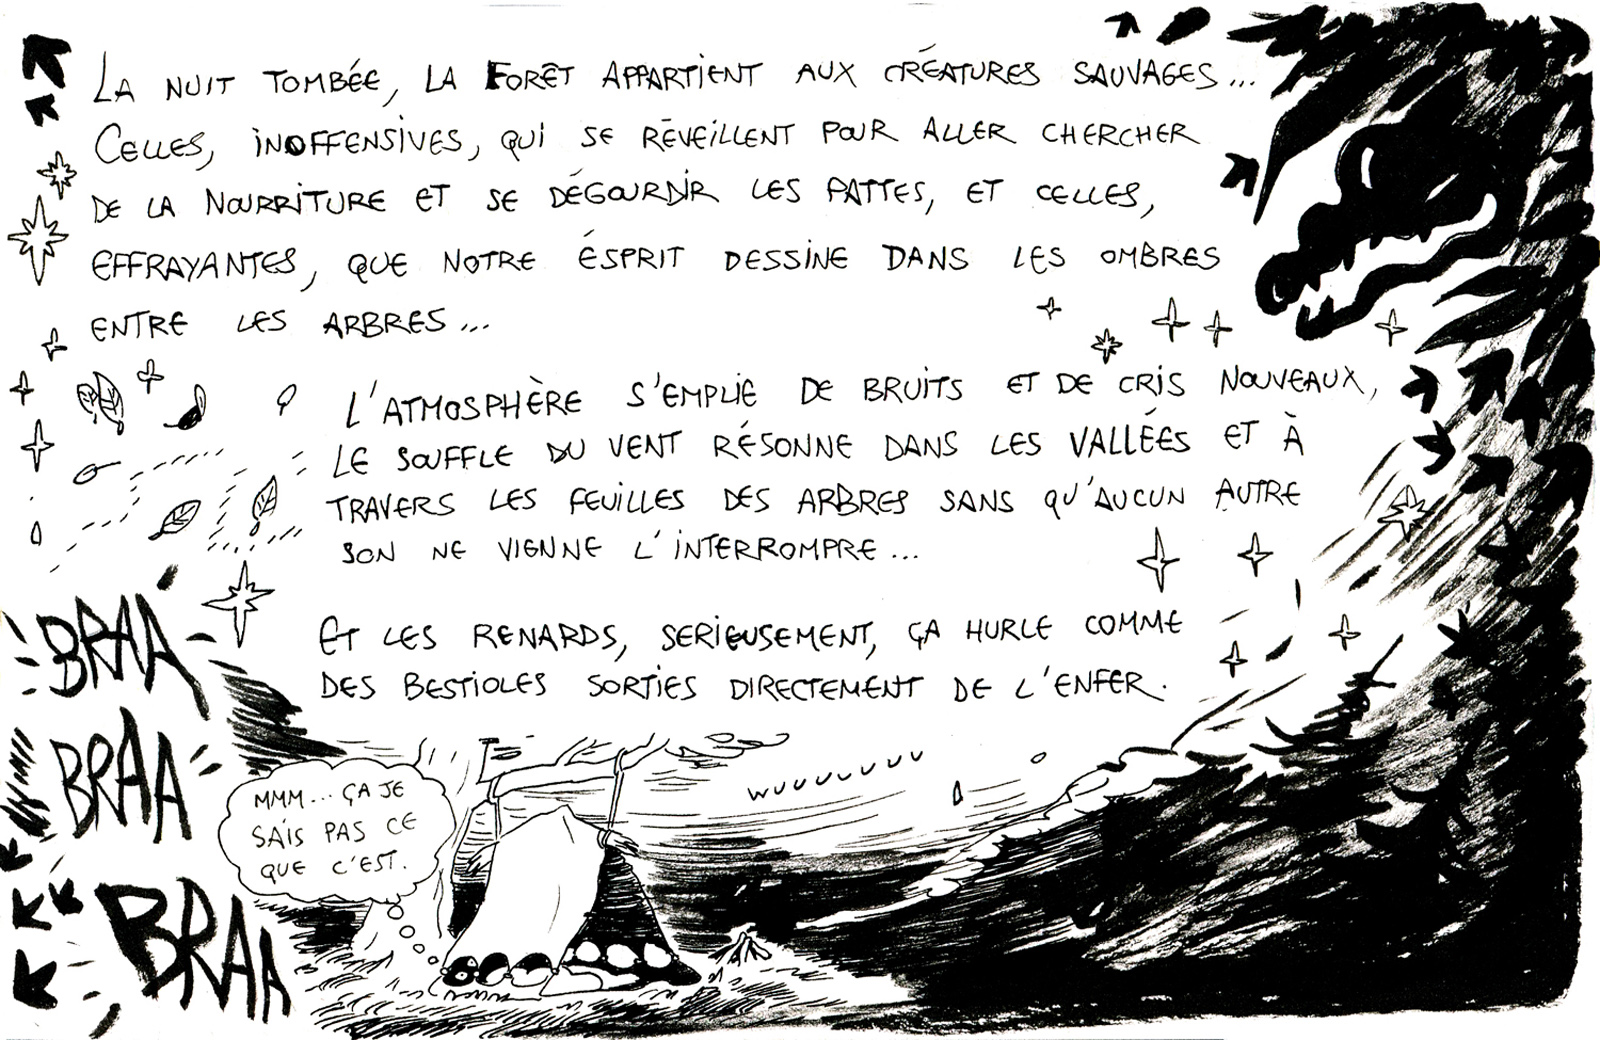 LA NUIT TOMBÉE, LA FORÊT APPARTIENT AUX CRÉATURES SAUVAGES...
CELLES, INOFFENSIVES, QUI SE RÉVEILLENT POUR ALLER CHERCHER
DE LA NOURRITURE ET SE DÉGOURDIR LES PATTES, ET CELLES,
EFFRAYANTES, QUE NOTRE ÉSPRIT DESSINE DANS LES OMBRES
ENTRE LES ARBRES...
L'ATMOSPHÈRE S'EMPLIE DE BRUITS ET DE CRIS NOUVEAUX,
LE SOUFFLE DU VENT RÉSONNE DANS LES VALLÉES ET À
TRAVERS LES FEUILLES DES ARBRES SANS QU'AUCUN AUTRE
SON NE VIENNE L'INTERROMPRE...
ET LES RENARDS, SERIEUSEMENT, ÇA HURLE COMME
DES BESTIOLES SORTIES DIRECTEMENT DE L'ENFER.
BRAA
BRAA
BRAA
MMM... ÇA JE
SAIS PAS CE
QUE C'EST.
WUUUUUUU